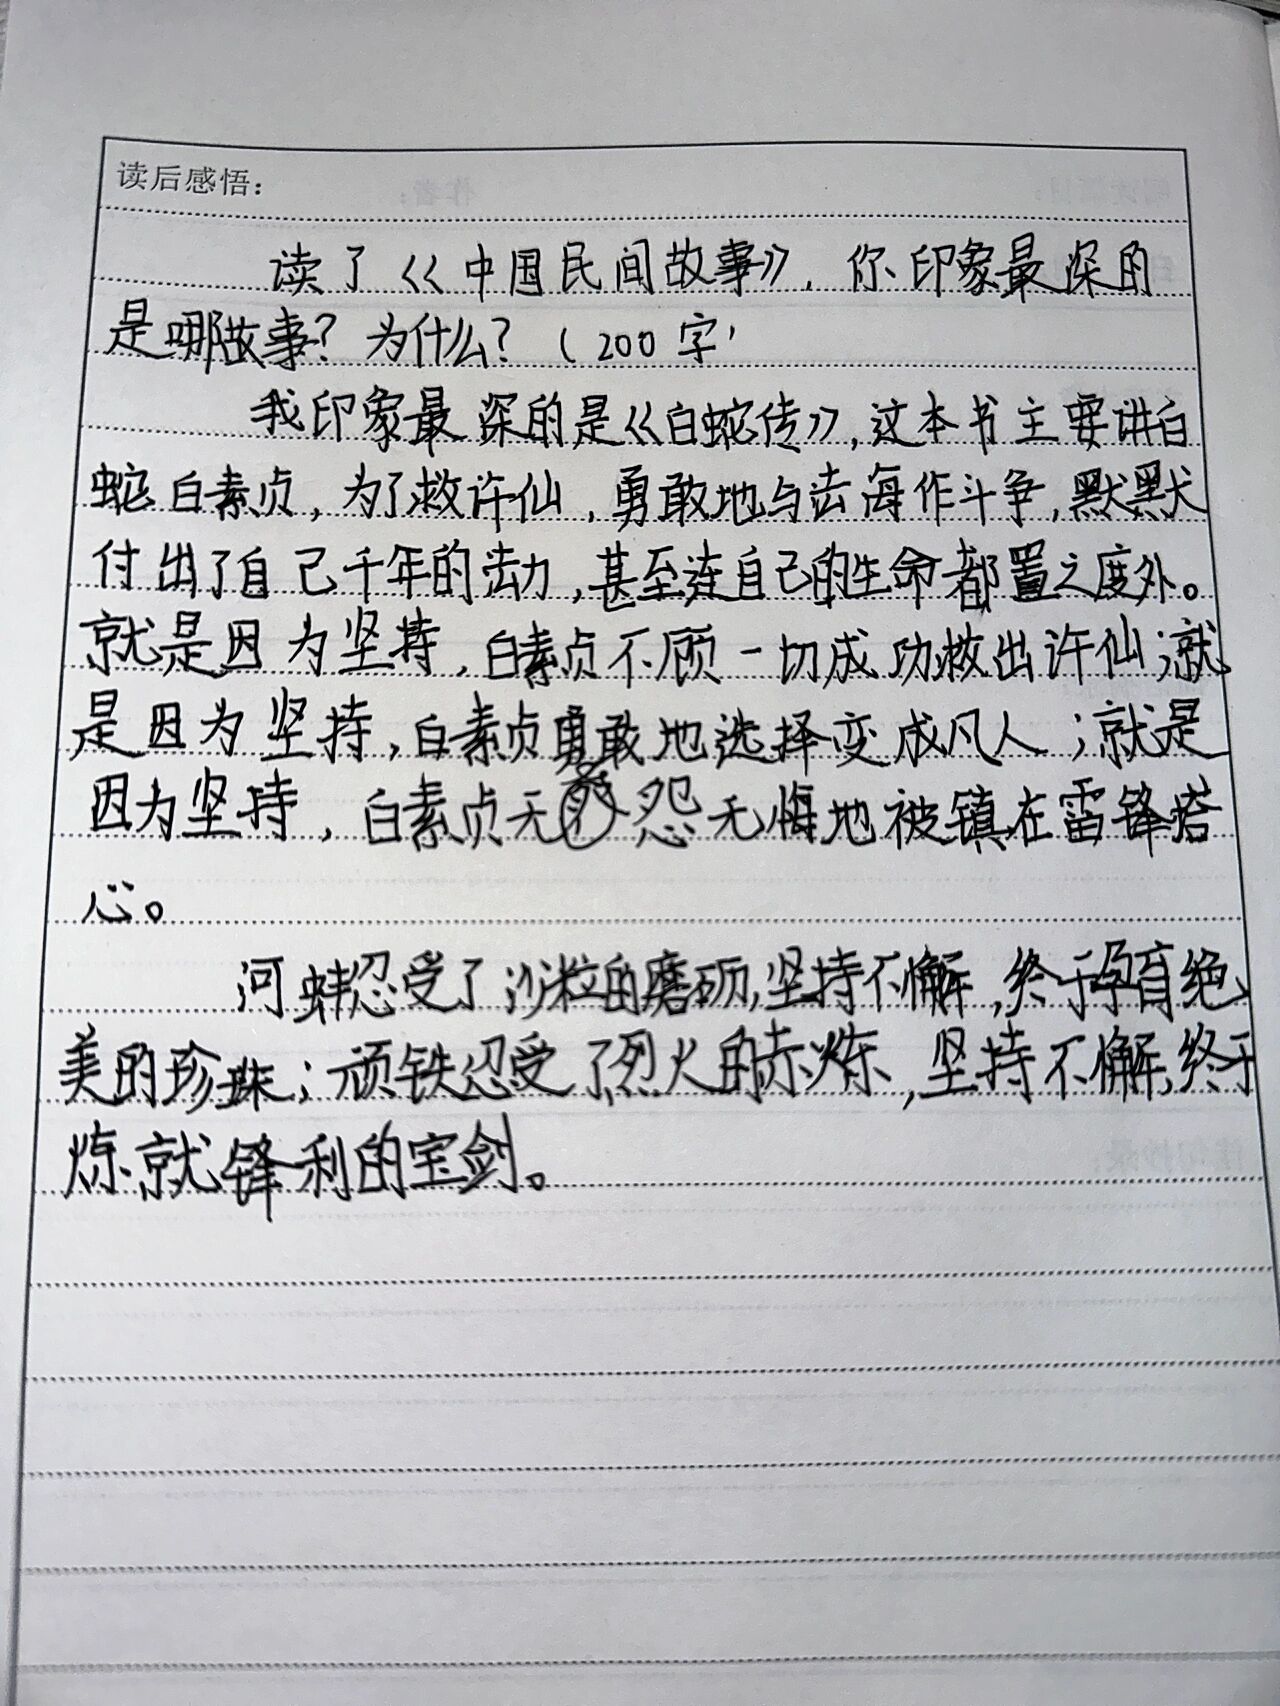 读后感悟：
读了《中国民间故事》，你印象最深的
是哪故事？为什么？（200字）
我印象最深的是《白蛇传》，这本书主要讲白
蛇白素贞，为了救许仙，勇敢地与法海作斗争，默默
付出了自己千年的法力，甚至连自己的生命都置之度外。
就是因为坚持，白素贞不顾一切成功救出许仙；就
是因为坚持，白素贞勇敢地选择变成凡人；就是
因为坚持，白素贞无怨无悔地被镇在雷锋塔
心。
河蚌忍受了沙粒的磨砺，坚持不懈，终于孕育绝
美的珍珠；顽铁忍受了烈火的赤炼，坚持不懈，终于
炼就锋利的宝剑。